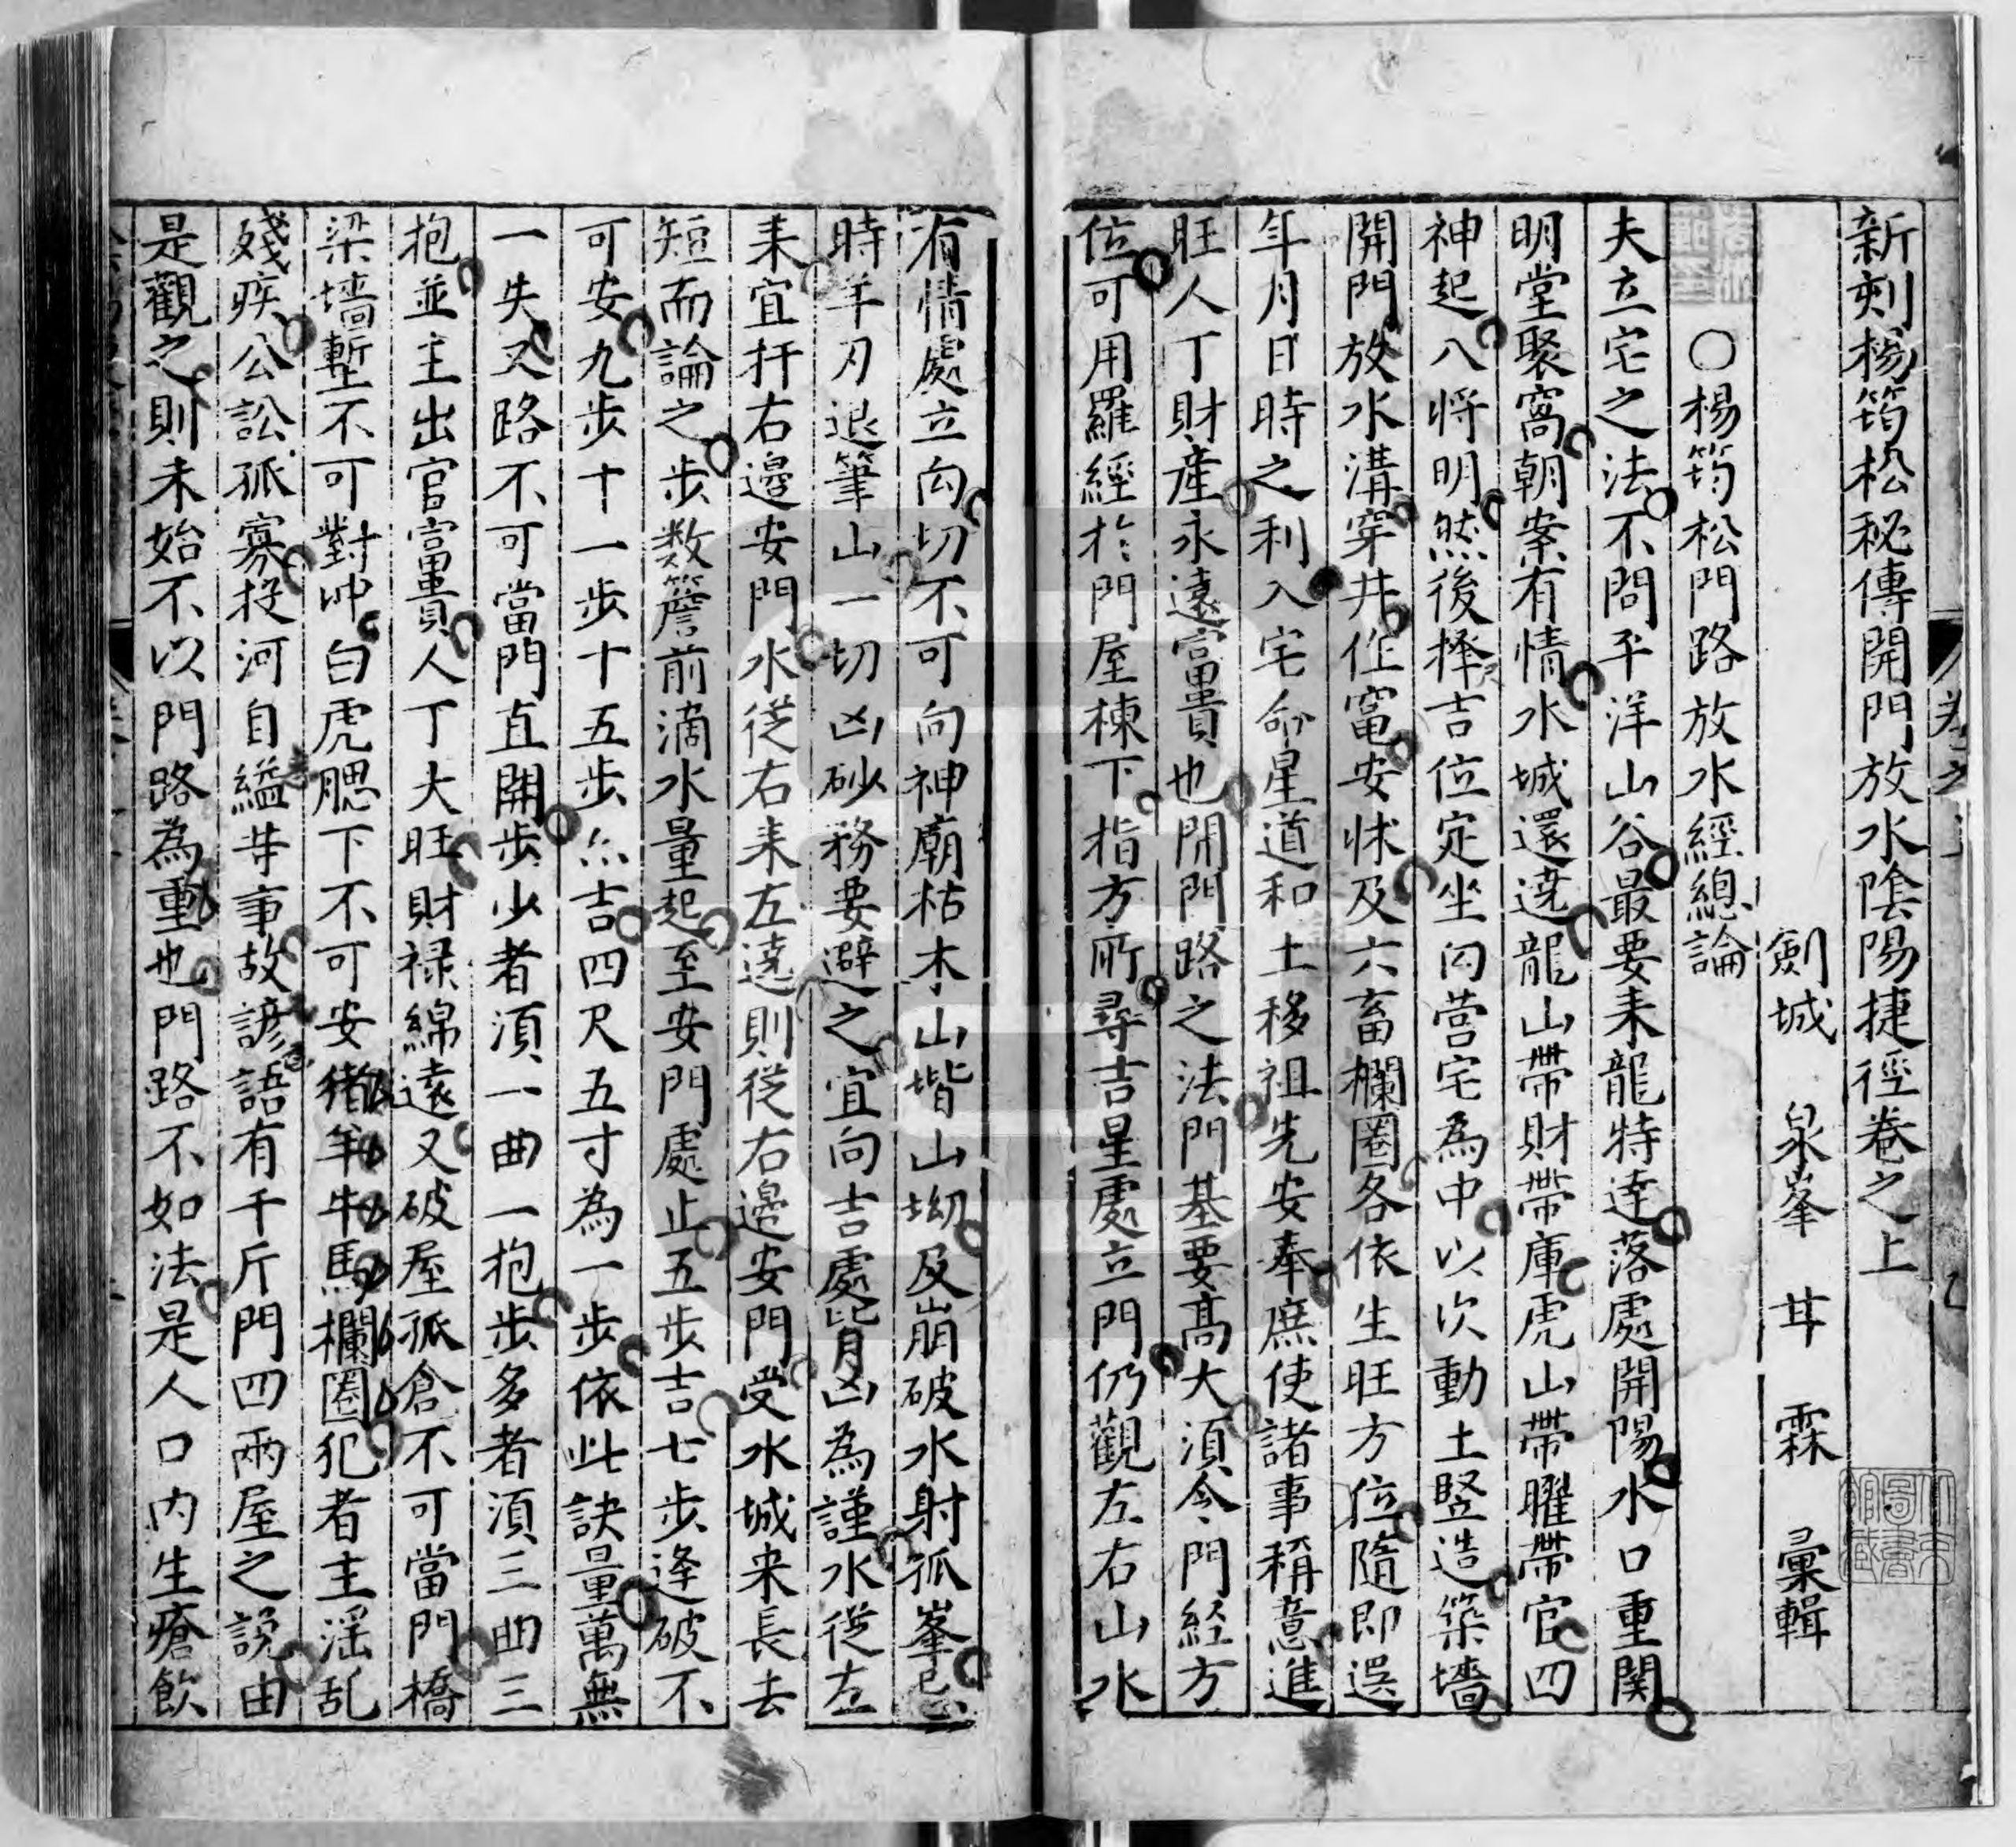 新刻楊筠松秘傳開門放水陰陽捷徑卷之上
劍城 泉峯 甘 霖 彙輯
○楊筠松門路放水經總論
夫立宅之法不問平洋山谷最要来龍特達落處開陽水口重関
明堂聚窩朝案有情水城還遶龍山帶財帶庫虎山帶曜帶官四
神起八将明然後擇吉位定坐向营宅為中以次動土竪造築墻
開門放水溝穿井作竃安牀及六畜欄圈各依生旺方位隨即選
年月日時之利入宅命星道和土移祖先安奉庶使諸事稱意進
旺人丁財產永遠富貴也開門路之法門基要髙大湏令門経方
位可用羅經扵門屋棟下指方所尋吉星處立門仍觀左右山水
有情處立向切不可向神廟枯木山堦山坳及崩破水射孤峯忌
時羊刃退筆山一切凶砂務要避之宜向吉處皆凶為謹水從左
来宜扞右邊安門水從右来左遶則從右邊安門受水城来長去
短而論之步数簷前滴水量起至安門處止五步吉七步逢破不
可安九步十一步十五步亦吉四尺五寸為一步依此訣量萬無
一失又路不可當門直開步少者湏一曲一抱步多者湏三曲三
抱並主出官富貴人丁大旺財禄綿遠又破屋孤倉不可當門橋
梁墻塹不可對冲白虎腮下不可安猪羊牛馬欄圈犯者主滛乱
殘疾公訟孤寡投河自縊䒭事故諺語有千斤門四兩屋之說由
是觀之則未始不以門路為重也門路不如法是人口内生瘡飲